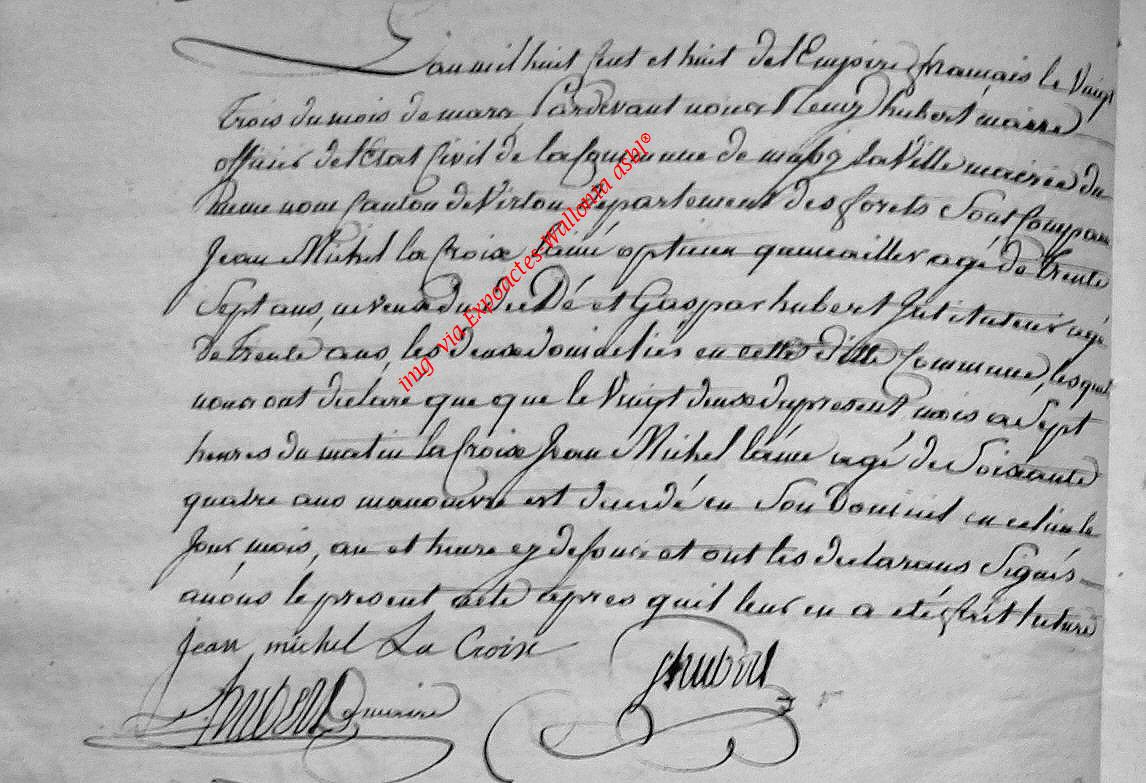 L'an mil huit Cent et huit de l'Empire français le Vingt
trois du mois de mars Pardevant nous hubert maire
officier de l'Etat Civil de la Commune de la Ville mairie du
meme nom Canton de Virton Departement des forets Sont Comparu
Jean Michel la Croix agé de trente
Sept ans, neveu du et Gaspar hubert Instituteur agé
de trente ans, les deux domicilies en cette ditte Commune, lesquels
nous ont declaré que que le Vingt deux du present mois a Sept
heures du matin la Croix Jean Michel l'ainé agé de Soixante
quatre ans manoeuvre est decedé en Son domicil
Jour mois, an et heure et ont les declarans Signés
avons le present acte apres quil leur en a eté fait lecture
Jean michel La Croix
hubert maire
ghubert
img via Expoactes Wallonia asbl®